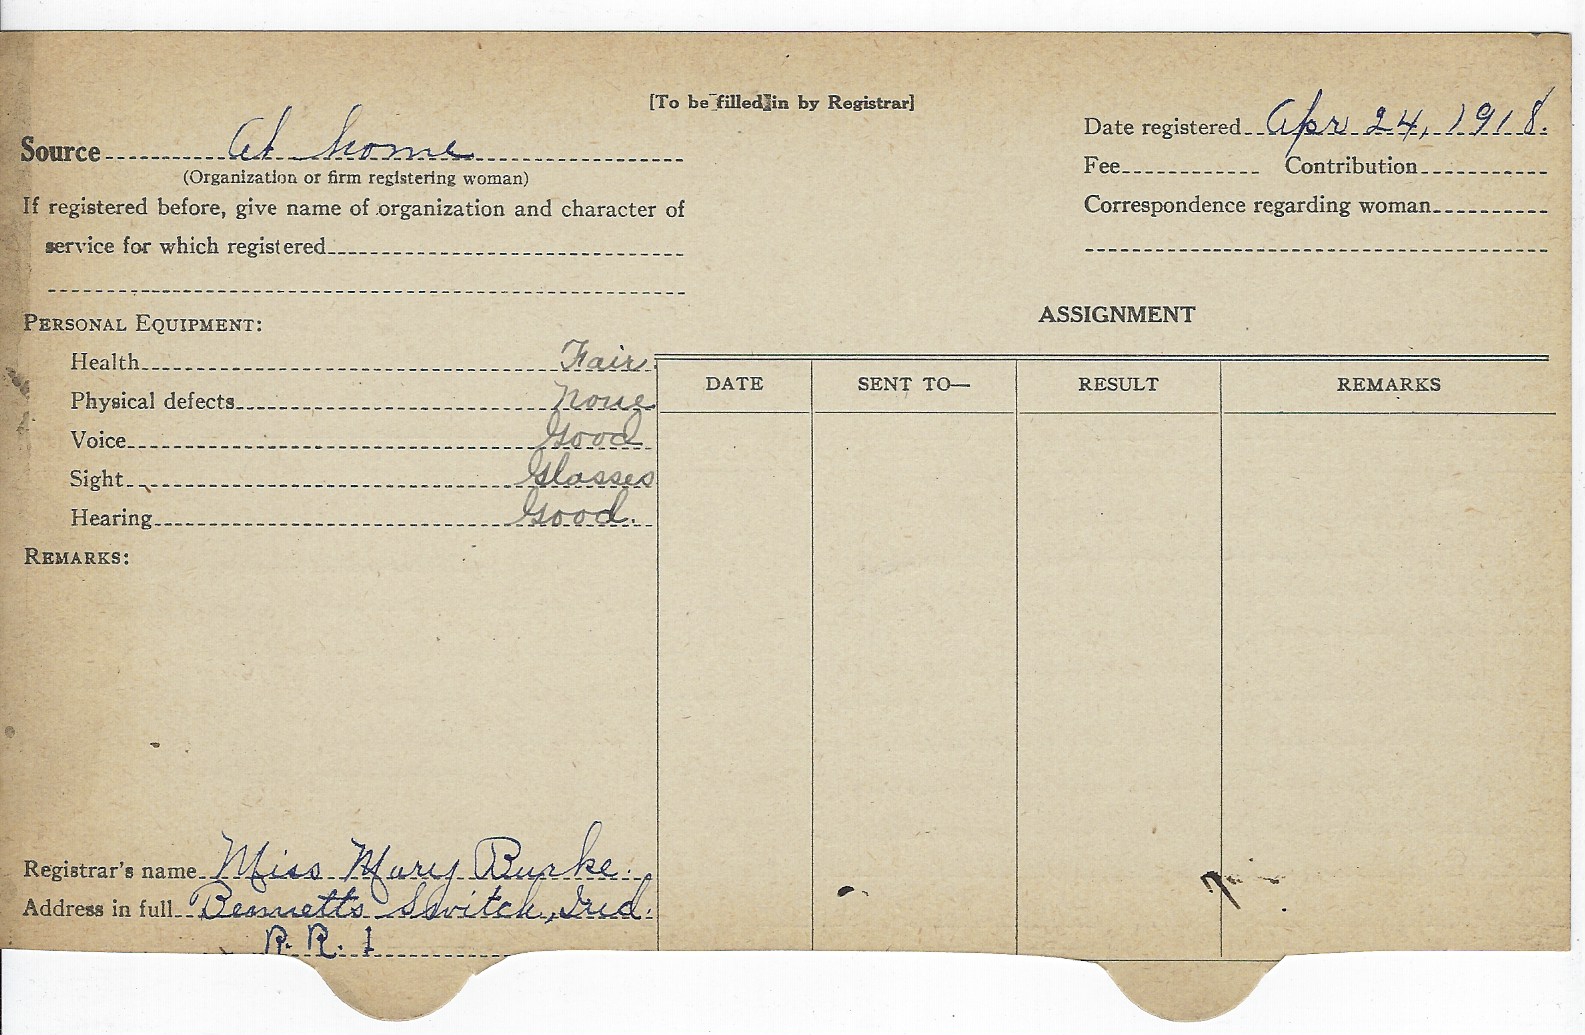 [To be filled in by Registrar]
Source At home
(Organization or firm registering woman)
If registered before, give name of organization and character of
service for which registered
Date registered Apr 24, 1918.
Fee Contribution
Correspondence regarding woman
PERSONAL EQUIPMENT:
Health Fair.
Physical defects None
Voice Good
Sight Glasses
Hearing Good.
REMARKS:
ASSIGNMENT
DATE SENT TO— RESULT REMARKS
Registrar's name Miss Mary Burke.
Address in full Bennetts Switch, Ind.
R. R. 1